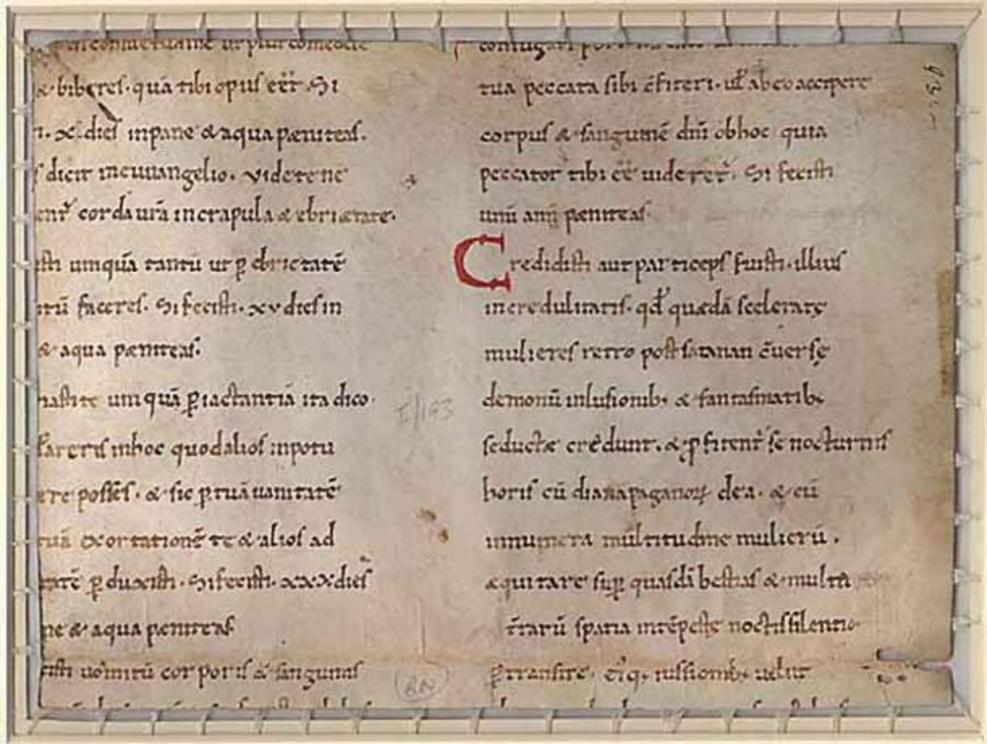 & biberes. quā tibi opus eēt. Si
dies in pane & aqua pæniteas.
dicit in euuangelio. videte ne
corda ur̄a in crapula & ebrietate.
umquā tantū ut p̱ ebrietatē
faceres. Si fecisti. xv dies in
& aqua pæniteas.
umquā p̱ iactantiā ita dico
in hoc quod alios in potu
posses. & sic p̱ tuā vanitatē
exortationē te & alios ad
p̱duxisti. Si fecisti. xxx dies
& aqua pæniteas
vomitū corporis & sanguinis
I/193
RN
tua peccata sibi c̄fiteri. ul̄ ab eo accipere
corpus & sanguinē dn̄i ob hoc quia
peccator tibi eē videret᷑. Si fecisti
unū annū pæniteas.
Credidisti aut particeps fuisti. illius
incredulitatis. qd̄ quædā sceleratę
mulieres retro post satanan c̄versę
demonū inlusionib; & fantasmatib;
seductæ credunt. & ꝓfitent᷑ se nocturnis
horis cū diana paganoꝝ dea. & cū
innumera multitudine mulierū.
æquitare sup̱ quasdā bestias & multa
t̄rarū spatia intēpestę noctis silentio
p̱transire. ei'q; iussionib; velut